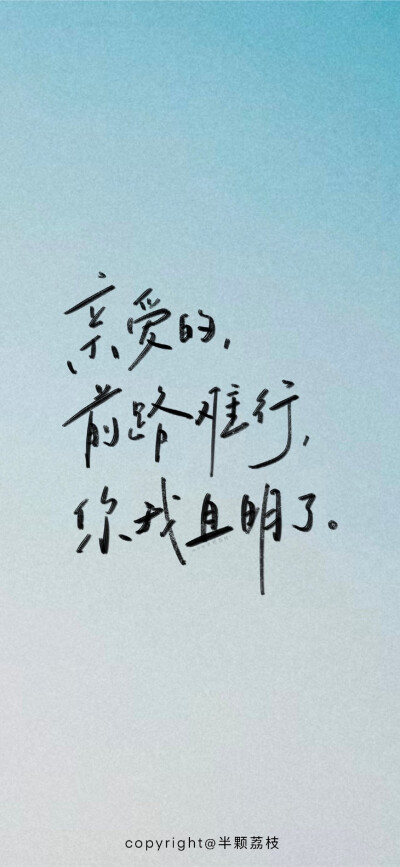 亲爱的，
前路难行，
你我且明了。
copyright@半颗荔枝